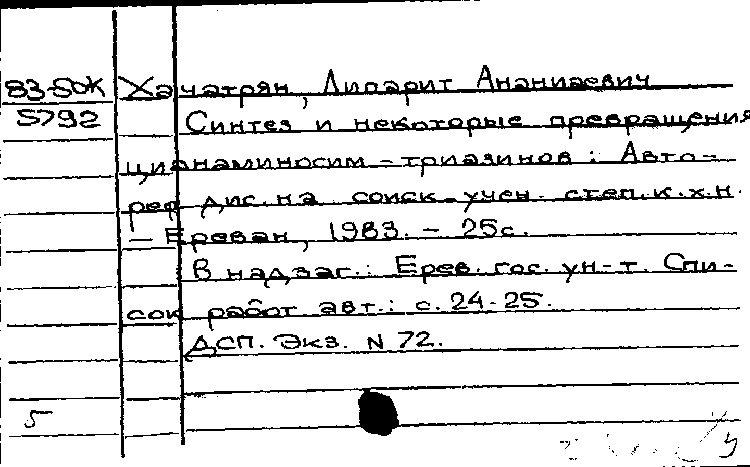 83-5ок Хачатрян, Липарит Ананиаевич
5792 Синтез и некоторые превращения
цианаминосим-триазинов: Авто-
реф дис. на соиск. учен. степ. к.х.н.
- Ереван, 1983. - 25с.
В надзаг.: Ерев. гос. ун-т. Спи-
сок работ авт.: с. 24-25.
ДСП. Экз. N 72.
5